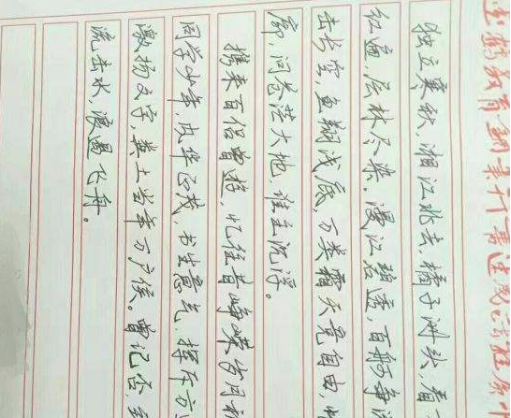 教育钢笔行书速成示范
独立寒秋，湘江北去，橘子洲头，看
红遍，层林尽染。漫江碧透，百舸争
击长空，鱼翔浅底，万类霜天竞自由，
廓，问苍茫大地，谁主沉浮。
携来百侣曾游，忆往昔峥嵘岁月
同学少年，风华正茂，书生意气，挥斥方
激扬文字，粪土当年万户侯。曾记否，
流击水，浪遏飞舟。